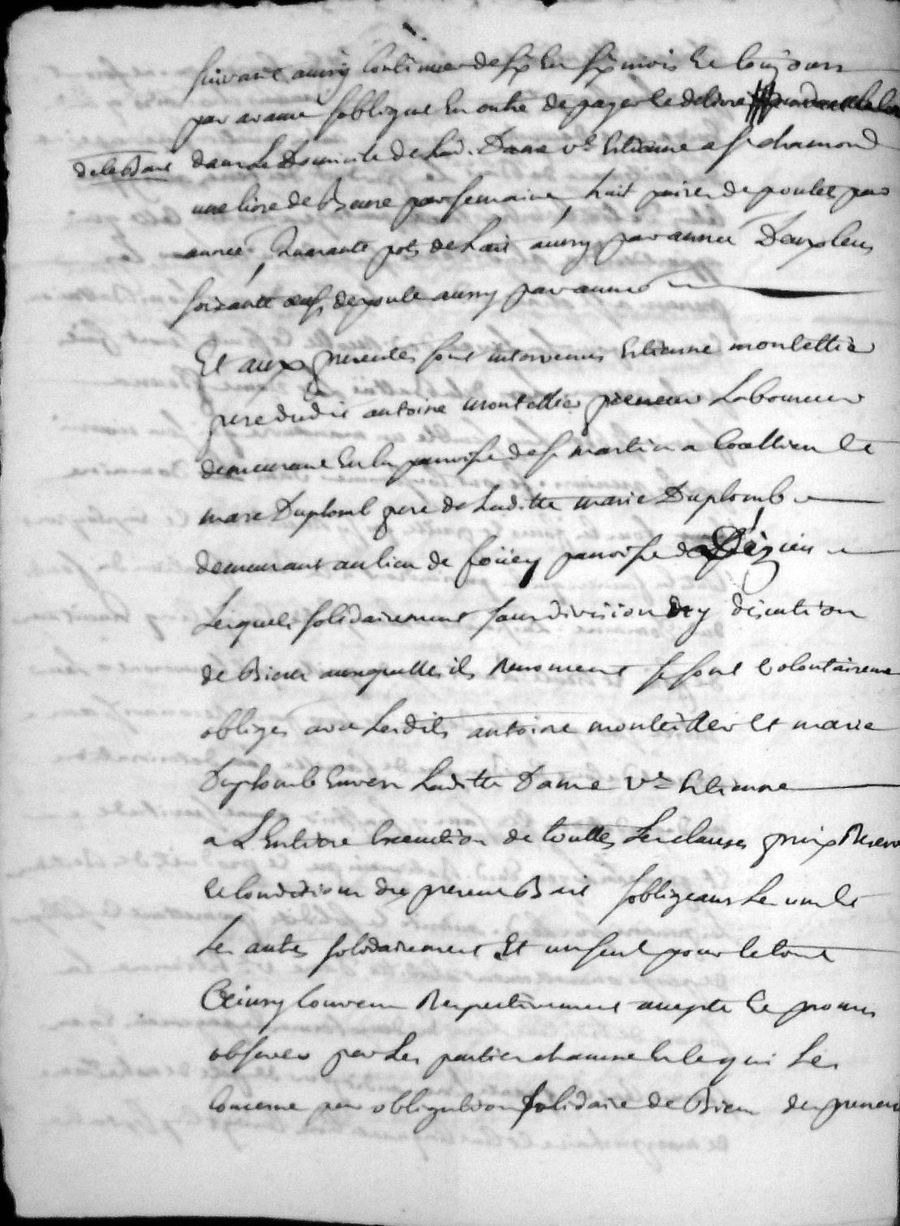 suivant aussy continuer de six en six mois et toujours
par avance s'oblige en outre de payer le delivré
de lad. Dame
dans le Domicile de lad. Dame Ve Etienne a St chamond
une livre de Beure par semaine, huit paires de poulets par
année, Quarante pots de lait aussy par année Deplus
soixante oeufs de poule aussy par année
Et aux presentes sont intervenus Etienne montellier
pere dudit antoine montellier preneur Laboureur
demeurant en la parroisse de St martin a Coallieu et
marc Duplomb pere de Laditte marie Duplomb
demeurant au lieu de foüey parroisse de
Lesquels solidairement sans division ny discution
de Biens auxquelles ils Renoncent se sont volontairement
obligés avec Lesdits antoine monteiller et marie
Duplomb Envers Laditte Dame Ve Etienne
a L'Entiere Execution de touttes Les clauses prix Reserves
et Conditions du present Bail s'obligeans Les uns et
Les autres solidairement Et un seul pour le tout
Ainsy Convenu Respectivement accepté et promis
observer par Les parties chacune En ce qui Les
Concerne par obligation solidaire de Biens des preneurs